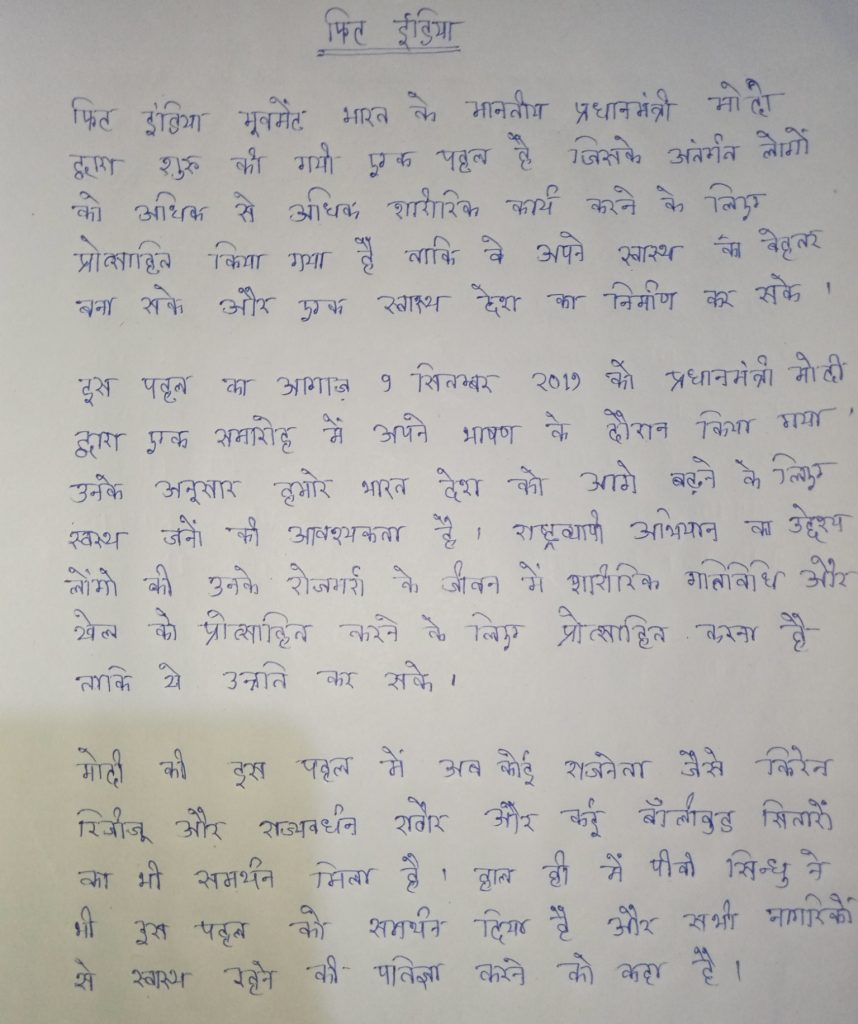 फिट इंडिया
फिट इंडिया मूवमेंट भारत के माननीय प्रधानमंत्री मोदी
द्वारा शुरू की गयी एक पहल है जिसके अंतर्गत लोगों
को अधिक से अधिक शारीरिक कार्य करने के लिए
प्रोत्साहित किया गया है ताकि वे अपने स्वास्थ को बेहतर
बना सके और एक स्वास्थ देश का निर्माण कर सके ।
इस पहल का आगाज़ 9 सितम्बर 2019 को प्रधानमंत्री मोदी
द्वारा एक समारोह में अपने भाषण के दौरान किया गया ।
उनके अनुसार हमारे भारत देश को आगे बढ़ने के लिए
स्वस्थ जनों की आवश्यकता है । राष्ट्रव्यापी अभियान का उद्देश्य
लोंगो की उनके रोजमर्रा के जीवन में शारीरिक गतिविधि और
खेल को प्रोत्साहित करने के लिए प्रोत्साहित करना है
ताकि ये उन्नति कर सके ।
मोदी की इस पहल में अब कोई राजनेता जैसे किरेन
रिजीजू और राज्यवर्धन राठौर और कई बॉलीवुड सितारों
का भी समर्थन मिला है । हाल ही में पीवी सिन्धु ने
भी इस पहल को समर्थन दिया है और सभी नागरिकों
से स्वास्थ रहने की पतिज्ञा करने को कहा है ।